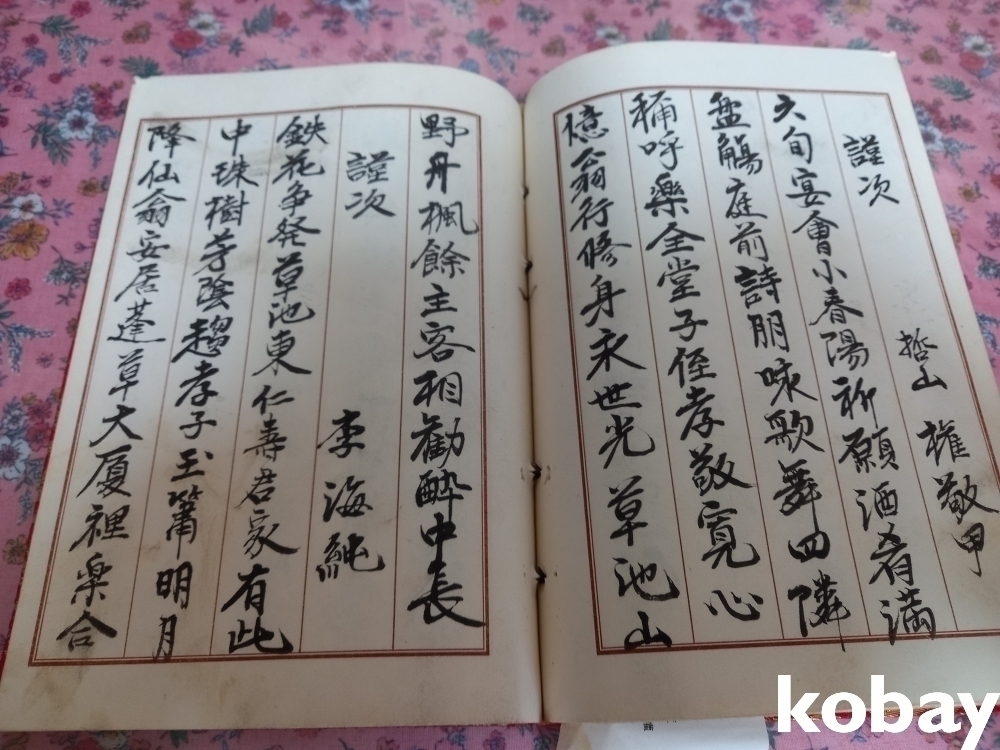 謹次 哲山 權敬甲
六旬宴會小春陽祈願酒肴滿
盃觴庭前詩朋咏歌舞四隣
稱呼樂全堂子侄孝敬寬心
憶翁行修身永世光草池山
野丹楓餘主客相勸醉中長
謹次 李海純
鉄花争発草池東仁壽君家有此
中珠樹芳陰趨孝子玉簫明月
降仙翁安居蓬草大厦裡楽合
kobay